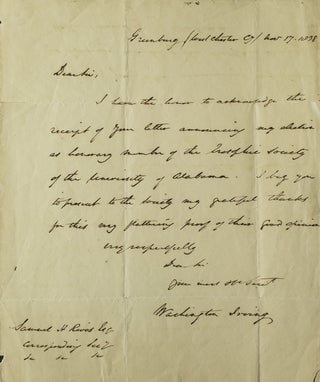 Greenburg (West Chester Cy) Nov 17. 1838
Dear Sir,
I have the honor to acknowledge the
receipt of your letter announcing my election
as honorary member of the Erosophic Society
of the University of Alabama. I beg you
to present to the society my grateful thanks
for this very flattering proof of their good opinion
very respectfully
Dear Sir
Your most ob Servt
Washington Irving
Samuel H Rives Esq
Corresponding Secy